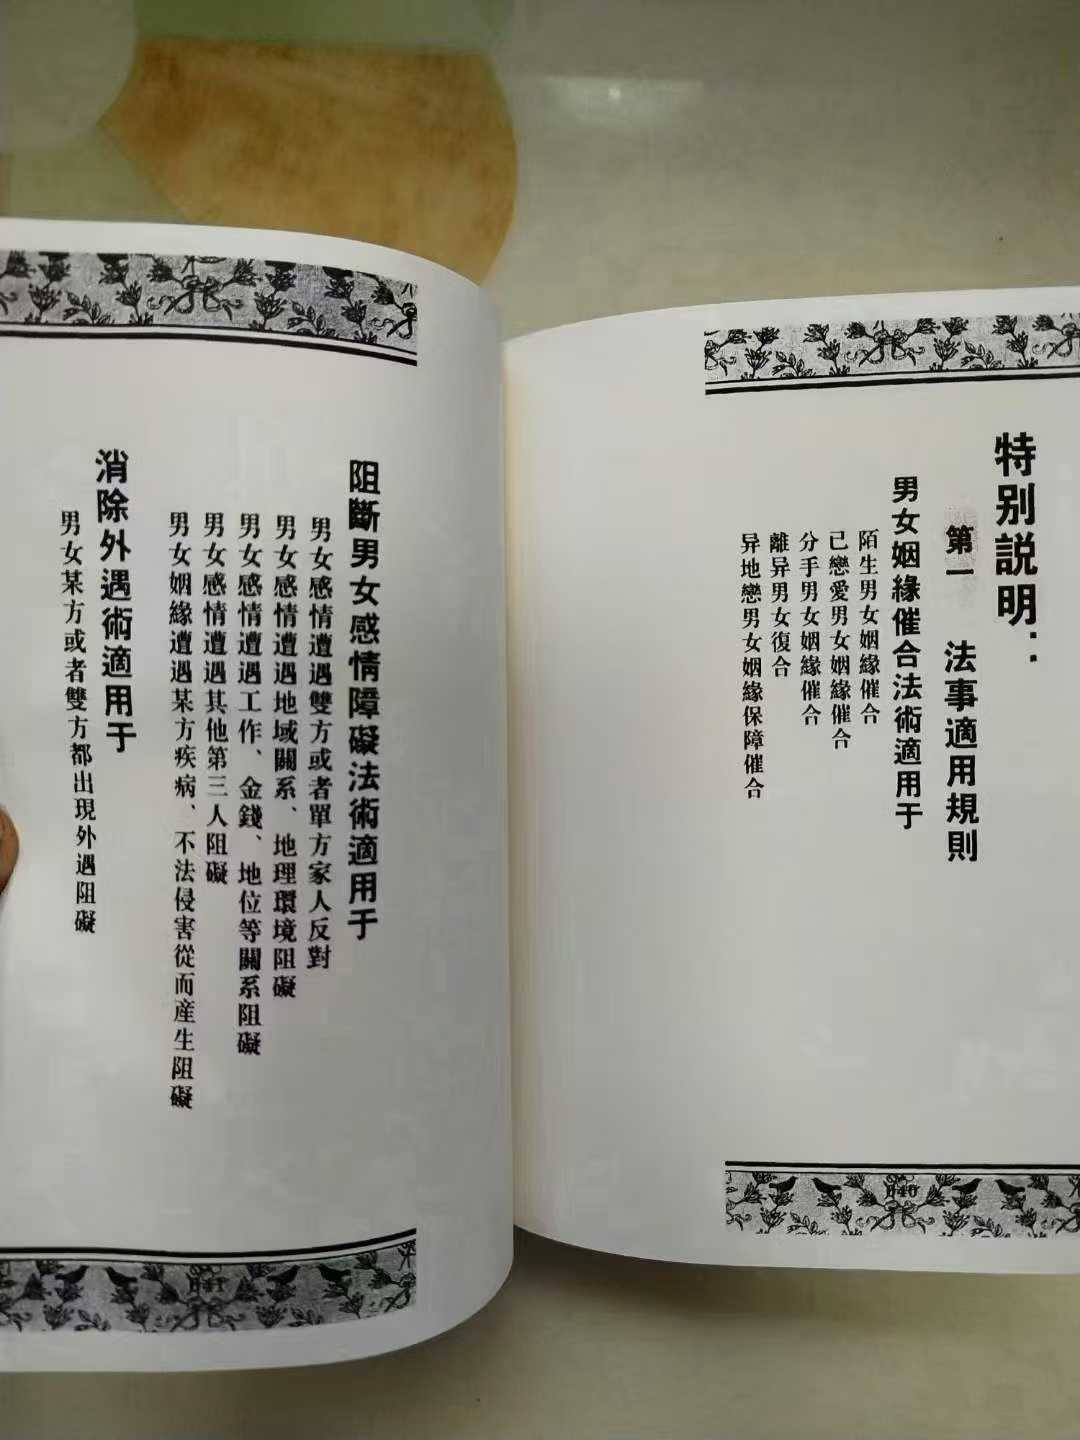 特别説明：
第一　法事適用規則
男女姻緣催合法術適用于
陌生男女姻緣催合
已戀愛男女姻緣催合
分手男女姻緣催合
離异男女復合
异地戀男女姻緣保障催合
040
阻斷男女感情障礙法術適用于
男女感情遭遇雙方或者單方家人反對
男女感情遭遇地域關系、地理環境阻礙
男女感情遭遇工作、金錢、地位等關系阻礙
男女感情遭遇其他第三人阻礙
男女姻緣遭遇某方疾病、不法侵害從而産生阻礙
消除外遇術適用于
男女某方或者雙方都出現外遇阻礙
041